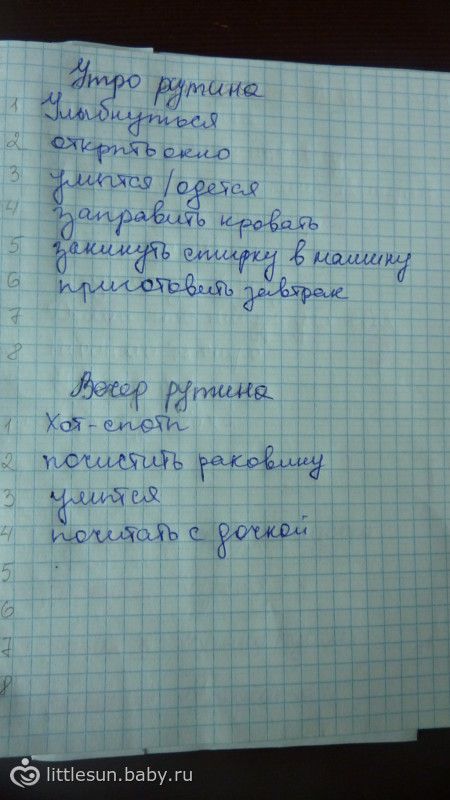 Утро рутина
1 Улыбнуться
2 открыть окно
3 умытся/одется
4 заправить кровать
5 закинуть стирку в машину
6 приготовить завтрак
7
8
Вечер рутина
1 Хот-споты
2 почистить раковину
3 умытся
4 почитать с дочкой
5
6
7
8
littlesun.baby.ru